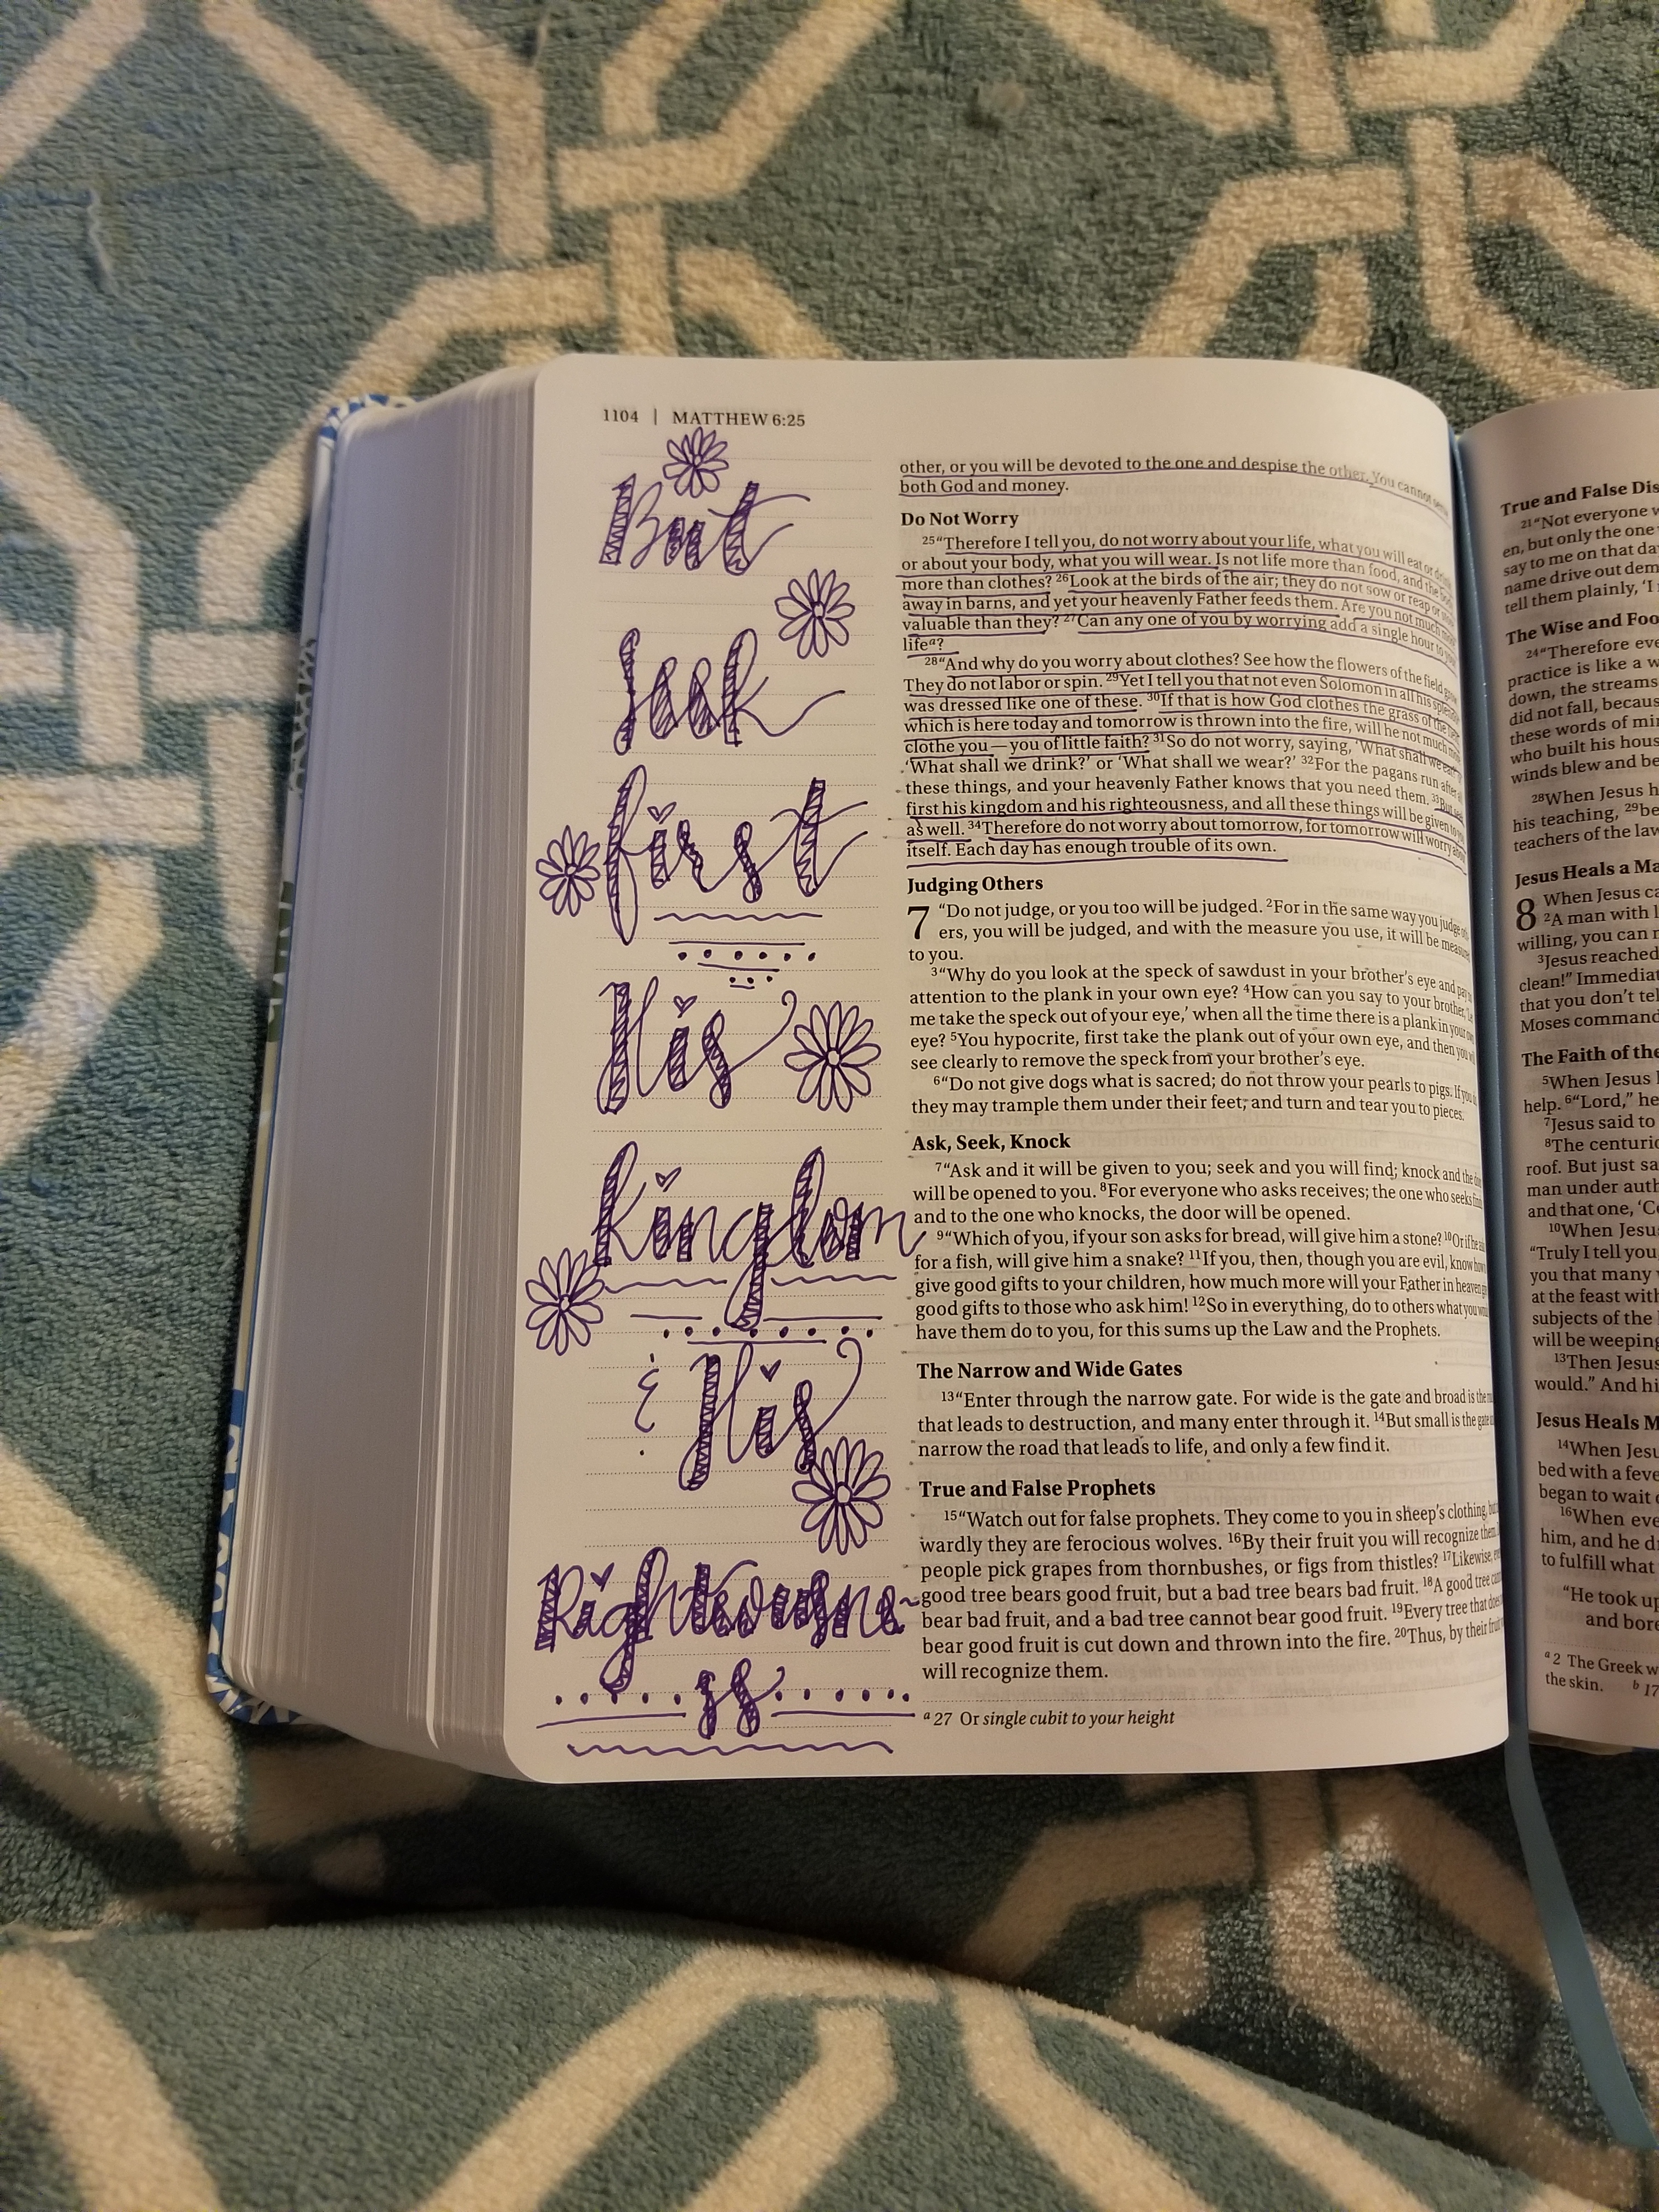 1104 | MATTHEW 6:25
But
Seek
first
His
kingdom
& His
Righteousne-
ss
other, or you will be devoted to the one and despise the other. You cannot
both God and money.
Do Not Worry
25“Therefore I tell you, do not worry about your life, what you will eat or
or about your body, what you will wear. Is not life more than food, and the
more than clothes? 26Look at the birds of the air; they do not sow or reap or
away in barns, and yet your heavenly Father feeds them. Are you not much
valuable than they? 27Can any one of you by worrying add a single hour to
lifea?
28“And why do you worry about clothes? See how the flowers of the field
They do not labor or spin. 29Yet I tell you that not even Solomon in all his
was dressed like one of these. 30If that is how God clothes the grass of the
which is here today and tomorrow is thrown into the fire, will he not much
clothe you—you of little faith? 31So do not worry, saying, ‘What shall we eat?’
‘What shall we drink?’ or ‘What shall we wear?’ 32For the pagans run after
these things, and your heavenly Father knows that you need them. 33But
first his kingdom and his righteousness, and all these things will be given to
as well. 34Therefore do not worry about tomorrow, for tomorrow will worry
itself. Each day has enough trouble of its own.
Judging Others
7 “Do not judge, or you too will be judged. 2For in the same way you judge
ers, you will be judged, and with the measure you use, it will be
to you.
3“Why do you look at the speck of sawdust in your brother’s eye and
attention to the plank in your own eye? 4How can you say to your brother,
me take the speck out of your eye,’ when all the time there is a plank in your
eye? 5You hypocrite, first take the plank out of your own eye, and then
see clearly to remove the speck from your brother’s eye.
6“Do not give dogs what is sacred; do not throw your pearls to pigs. If
they may trample them under their feet, and turn and tear you to pieces.
Ask, Seek, Knock
7“Ask and it will be given to you; seek and you will find; knock and the
will be opened to you. 8For everyone who asks receives; the one who seeks
and to the one who knocks, the door will be opened.
9“Which of you, if your son asks for bread, will give him a stone? 10Or if he
for a fish, will give him a snake? 11If you, then, though you are evil, know
give good gifts to your children, how much more will your Father in heaven
good gifts to those who ask him! 12So in everything, do to others what you
have them do to you, for this sums up the Law and the Prophets.
The Narrow and Wide Gates
13“Enter through the narrow gate. For wide is the gate and broad is the
that leads to destruction, and many enter through it. 14But small is the gate
narrow the road that leads to life, and only a few find it.
True and False Prophets
15“Watch out for false prophets. They come to you in sheep’s clothing,
wardly they are ferocious wolves. 16By their fruit you will recognize them.
people pick grapes from thornbushes, or figs from thistles? 17Likewise,
good tree bears good fruit, but a bad tree bears bad fruit. 18A good tree
bear bad fruit, and a bad tree cannot bear good fruit. 19Every tree that
bear good fruit is cut down and thrown into the fire. 20Thus, by their
will recognize them.
a 27 Or single cubit to your height
True and False
21“Not everyone
en, but only the one
say to me on that
name drive out
tell them plainly, ‘I
The Wise and
24“Therefore
practice is like a
down, the streams
did not fall,
these words of
who built his
winds blew and
28When Jesus
his teaching, 29
teachers of the
Jesus Heals a
8 When Jesus
2A man with
willing, you can
3Jesus reached
clean!” Immediat
that you don’t tell
Moses command
The Faith of the
5When Jesus
help. 6“Lord,” he
7Jesus said to
8The
roof. But just
man under
and that one,
10When Jesus
“Truly I tell you,
you that many
at the feast with
subjects of the
will be weeping
13Then Jesus
would.” And
Jesus Heals
14When
bed with a
began to wait
16When
him, and he
to fulfill what
“He took up
and
a 2 The Greek
the skin. b 17